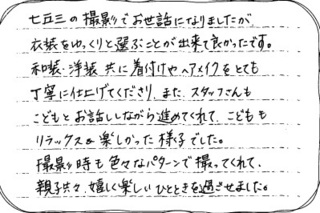 七五三の撮影でお世話になりましたが
衣装をゆっくりと選ぶことが出来て良かったです。
和装・洋装 共に着付けやヘアメイクをとても
丁寧に仕上げてくださり、また、スタッフさんも
こどもとお話ししながら進めてくれて、こどもも
リラックス& 楽しかった様子でした。
撮影時も色々なパターンで撮ってくれて、
親子共々、嬉しく楽しいひとときを過ごせました。